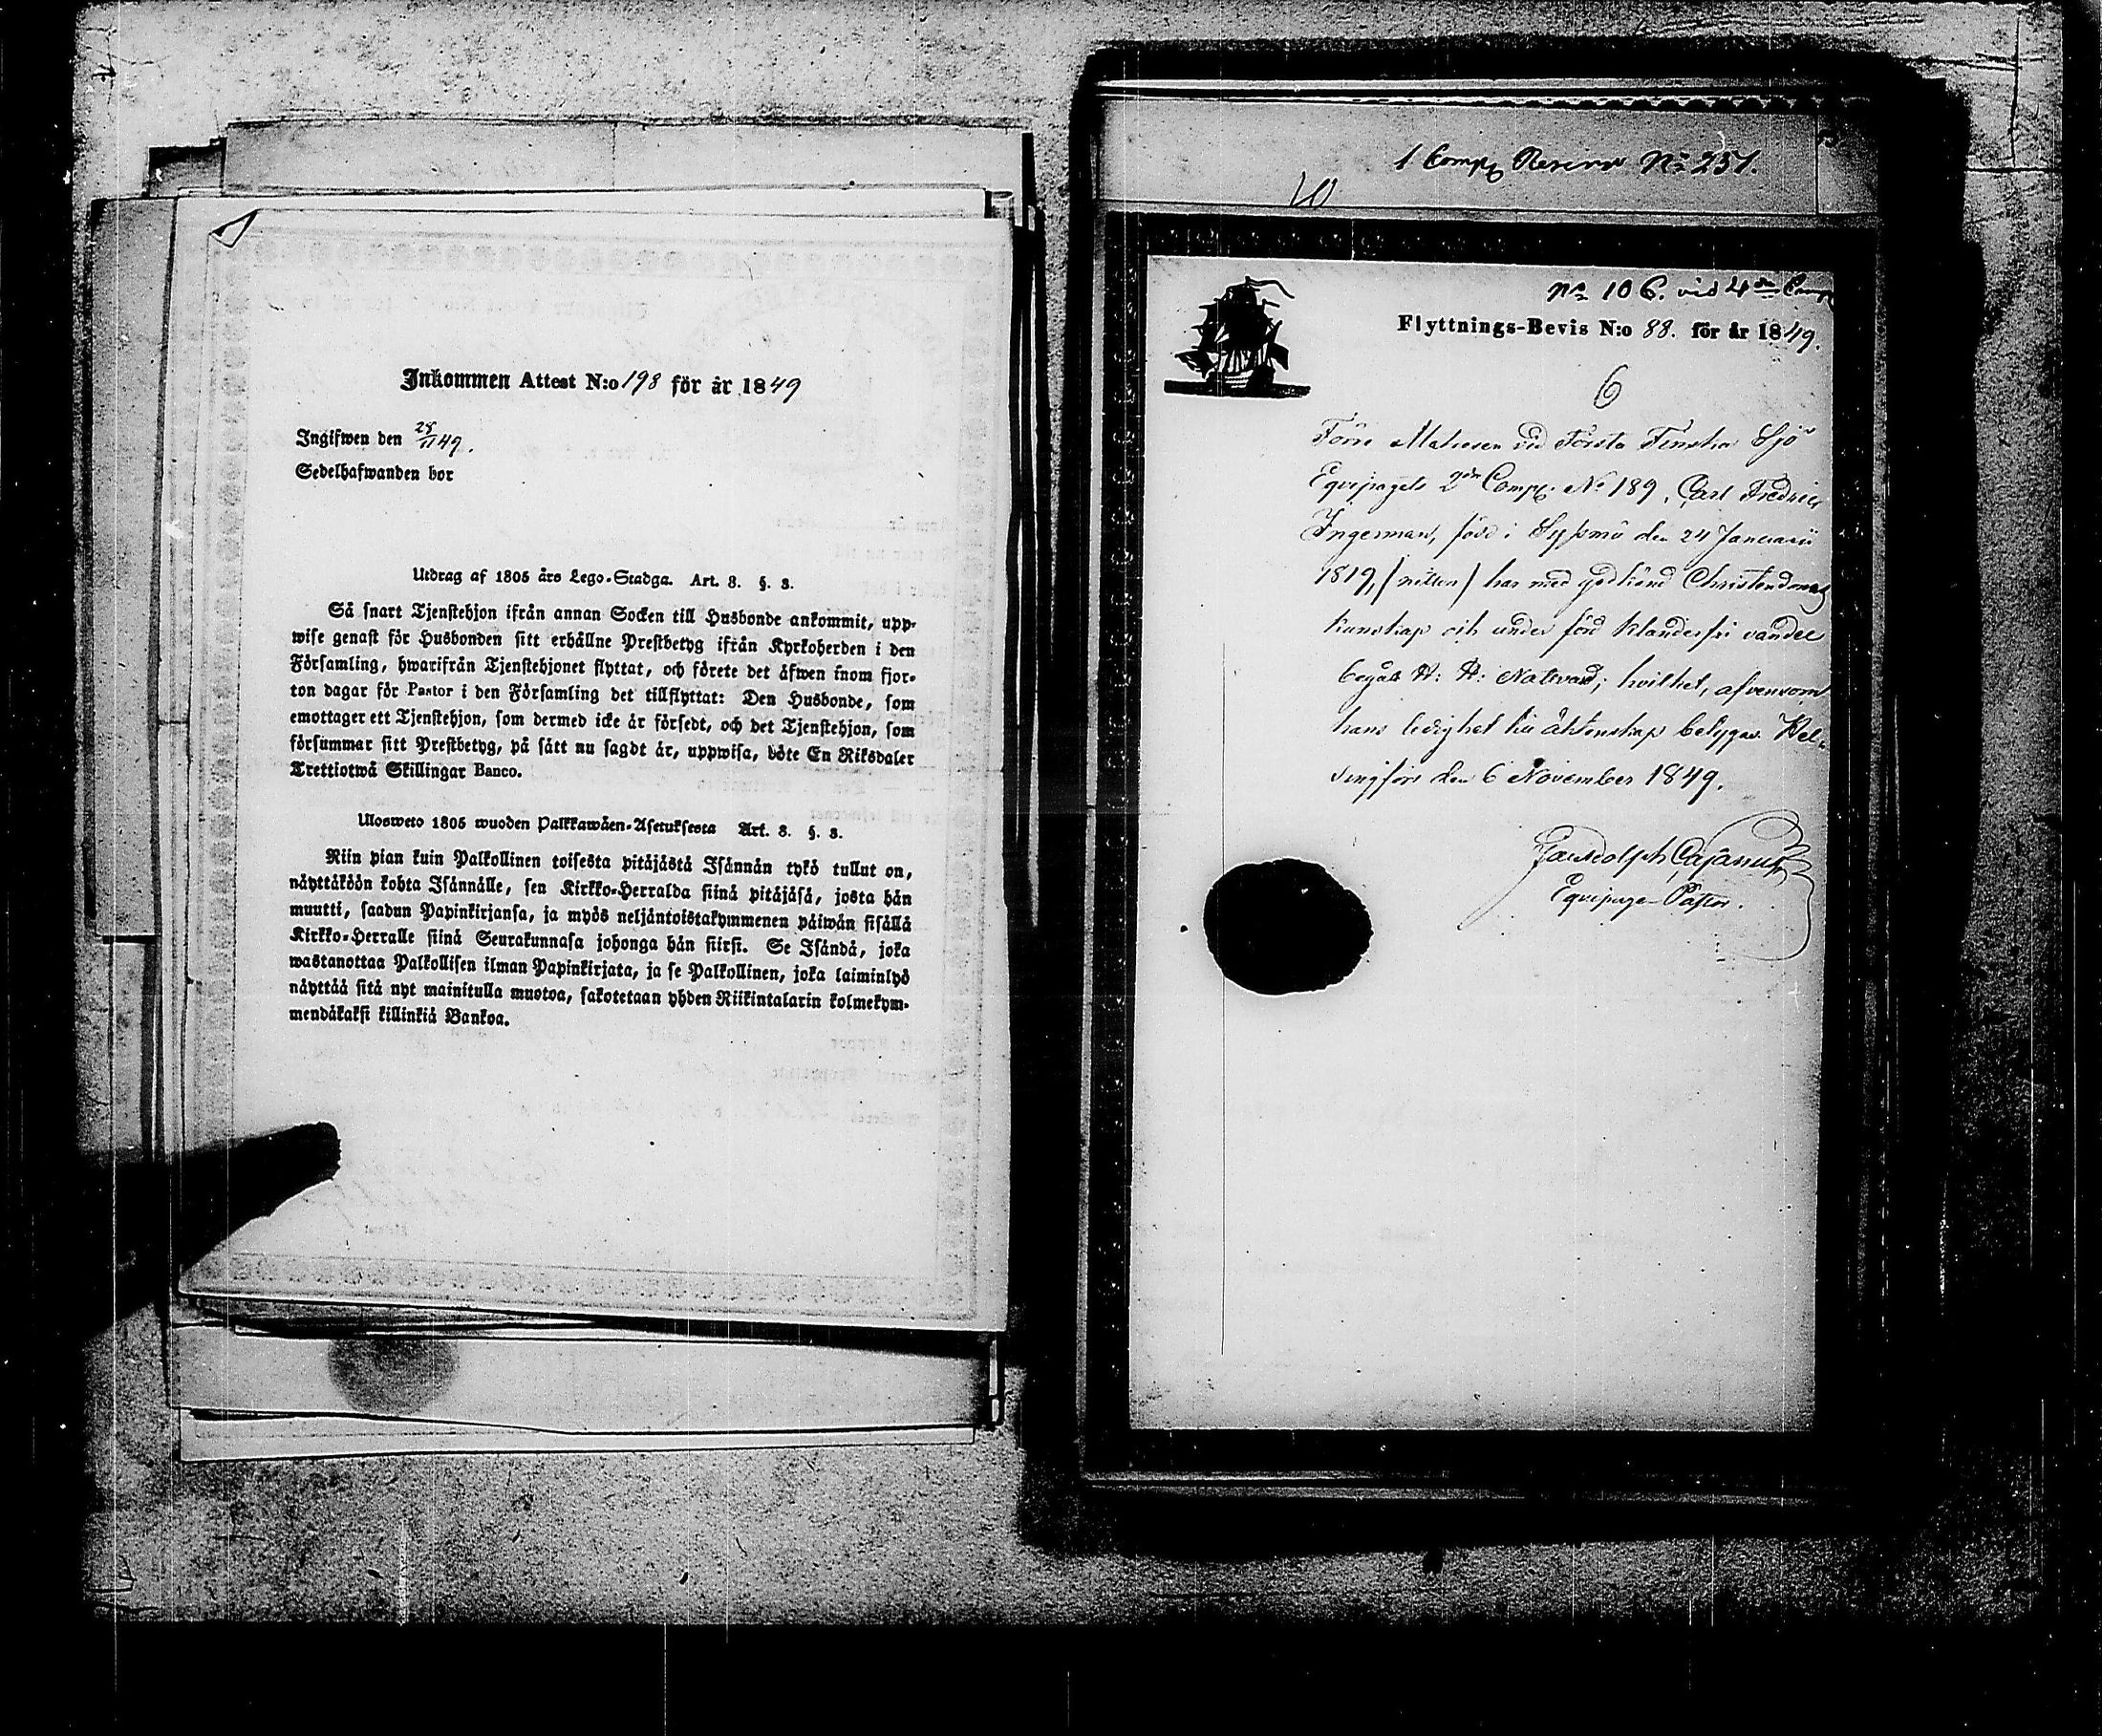 Inkommen Attest N:o 198 för år 1849
Ingifwen den 28/11 49.
Sedelhafwanden bor
Utdrag af 1805 års Lego-Stadga. Art. 8. §. 8.
Så snart Tjenstehjon ifrån annan Socken till Husbonde ankommit, upp-
wise genast för Husbonden sitt erhållne Prestbetyg ifrån Kyrkoherden i den
Församling, hwarifrån Tjenstehjonet flyttat, och förete det äfwen inom fjor-
ton dagar för Pastor i den Församling det tillflyttat: Den Husbonde, som
emottager ett Tjenstehjon, som dermed icke är försedt, och det Tjenstehjon, som
försummar sitt Prestbetyg, på sätt nu sagdt är, uppwisa, böte En Riksdaler
Trettiotwå Skillingar Banco.
Ulosweto 1805 wuoden Palkkawäen-Asetuksesta Art. 8. §. 8.
Niin pian kuin Palkollinen toisesta pitäjästä Isännän tykö tullut on,
näyttäköön kohta Isännälle, sen Kirkko-Herralda siinä pitäjäsä, josta hän
muutti, saadun Papinkirjansa, ja myös neljäntoistakymmenen päiwän sisällä
Kirkko-Herralle siinä Seurakunnasa johonga hän siirsi. Se Isändä, joka
wastanottaa Palkollisen ilman Papinkirjata, ja se Palkollinen, joka laiminlyö
näyttää sitä nyt mainitulla muotoa, sakotetaan yhden Riikintalarin kolmekym-
mendäkaksi killinkiä Bankoa.
1 Comp. Reserv No 251.
10
No 106. vid 4de Comp
Flyttnings-Bevis N:o 88. för år 1849.
6
Förre Matrosen vid Första Finska Sjö
Equipagets 2dra Comp. No 189, Carl Fredric
Ingerman, född i Sysmä den 24 Januarii
1819, (nitton) har med godkänd Christendoms
kunskap och under förd klanderfri vandel
begått H: H: Nattvard; hvilket, äfvensom
hans ledighet till äktenskap betygas. Hel-
singfors den 6 November 1849.
Cajanus
Equipage-Pastor.